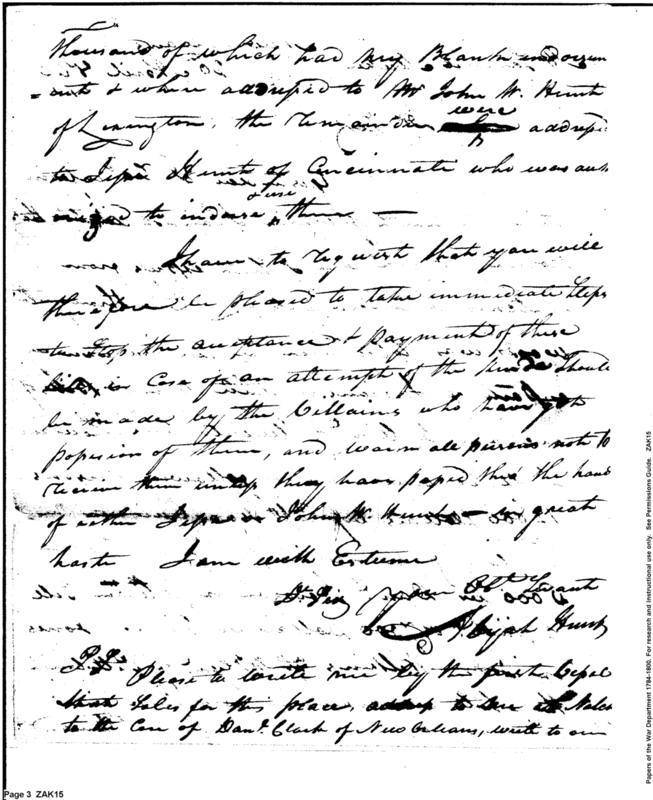 Thousand of which had my Blank indorsem
=ents & where addressed to Mr John W. Hunt
of Lexington, the remainder were addresse
to Jesse Hunt of Cincinnati who was aut
to indorse & use them —
I have to request that you will
therefore be pleased to take immediate Steps
to stop the acceptance & payment of these
bills in Case of an attempt of the kind should
be made by the Villains who have got
possession of them, and warn all persons not to
receive them unless they have passed thro the hand
of either Jesse or John W. Hunt — in great
haste I am with Esteem
Dr Sir your Obt. Servant
Abijah Hunt
P.S. Please to write me by the first Vessel
that Sales for this place, address to me at Natch
to the Care of Danl. Clark of New Orleans, write to
Page 3 ZAK15
Papers of the War Department 1784-1800. For research and instructional use only. See Permissions Guide. ZAK15